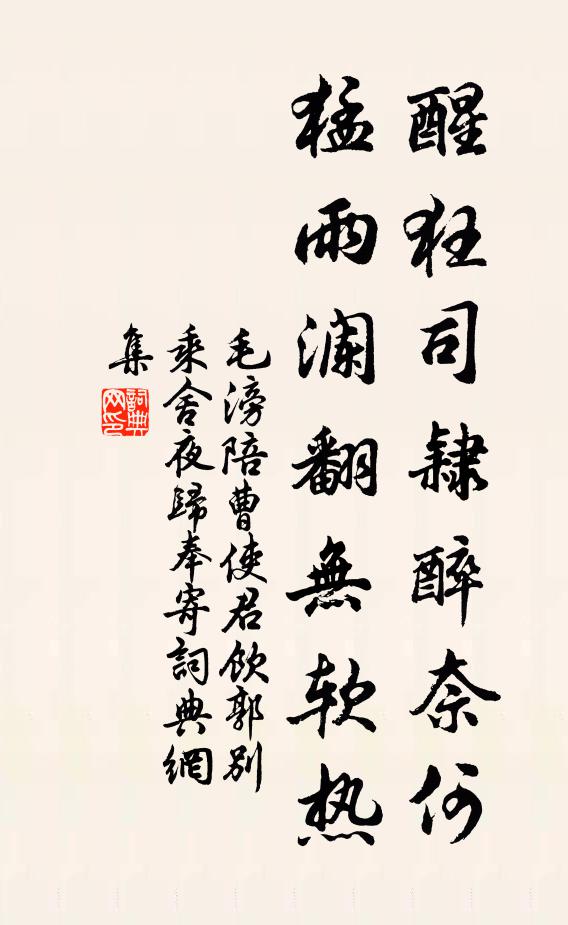 醒狂司隸醉奈何
猛雨瀾翻無软热
毛滂陪曹使君飲郭别
乘舍夜歸奉寄詞典網
集
詞典
网印